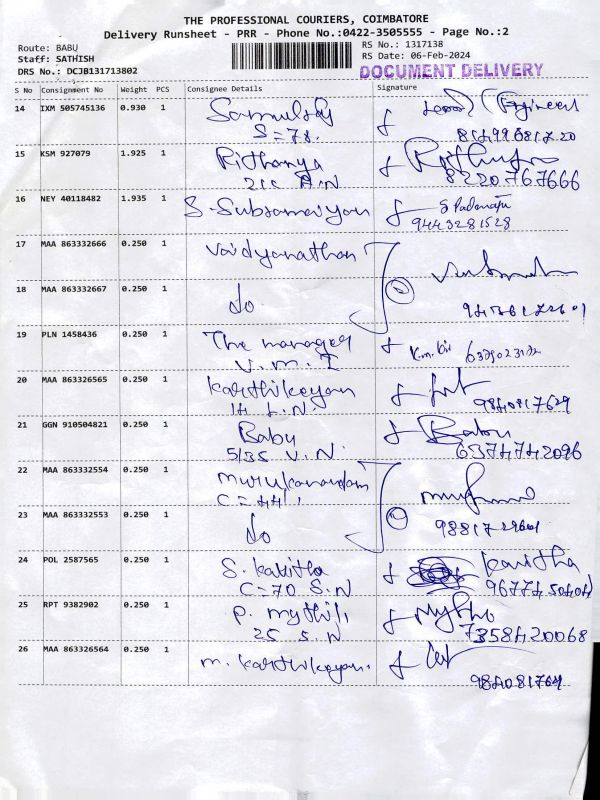 THE PROFESSIONAL COURIERS, COIMBATORE
Delivery Runsheet - PRR - Phone No.:0422-3505555 - Page No.:2
Route: BABU
Staff: SATHISH
DRS No.: DCJB131713802
RS No.: 1317138
RS Date: 06-Feb-2024
DOCUMENT DELIVERY
S No Consignment No Weight PCS Consignee Details Signature
14 IXM 505745136 0.930 1
15 KSM 927079 1.925 1 Rithanya
8220767666
16 NEY 40118482 1.935 1 S. Subramaiyan S Padmaja
9443281528
17 MAA 863332666 0.250 1 Vaidyanathan
18 MAA 863332667 0.250 1 do
19 PLN 1458436 0.250 1 The manager
V.M.I
20 MAA 863326565 0.250 1 Karthikeyan
14 L.N.
9840817629
21 GGN 910504821 0.250 1 Babu Babu
5/35 V.N. 6374742096
22 MAA 863332554 0.250 1 Murukanandam
C=44/1
23 MAA 863332553 0.250 1 do
24 POL 2587565 0.250 1 S. Kavitha Kavitha
C=70 S.N
25 RPT 9382902 0.250 1 P. Mythili
25 S.N 7358420068
26 MAA 863326564 0.250 1 M. Karthikeyan.